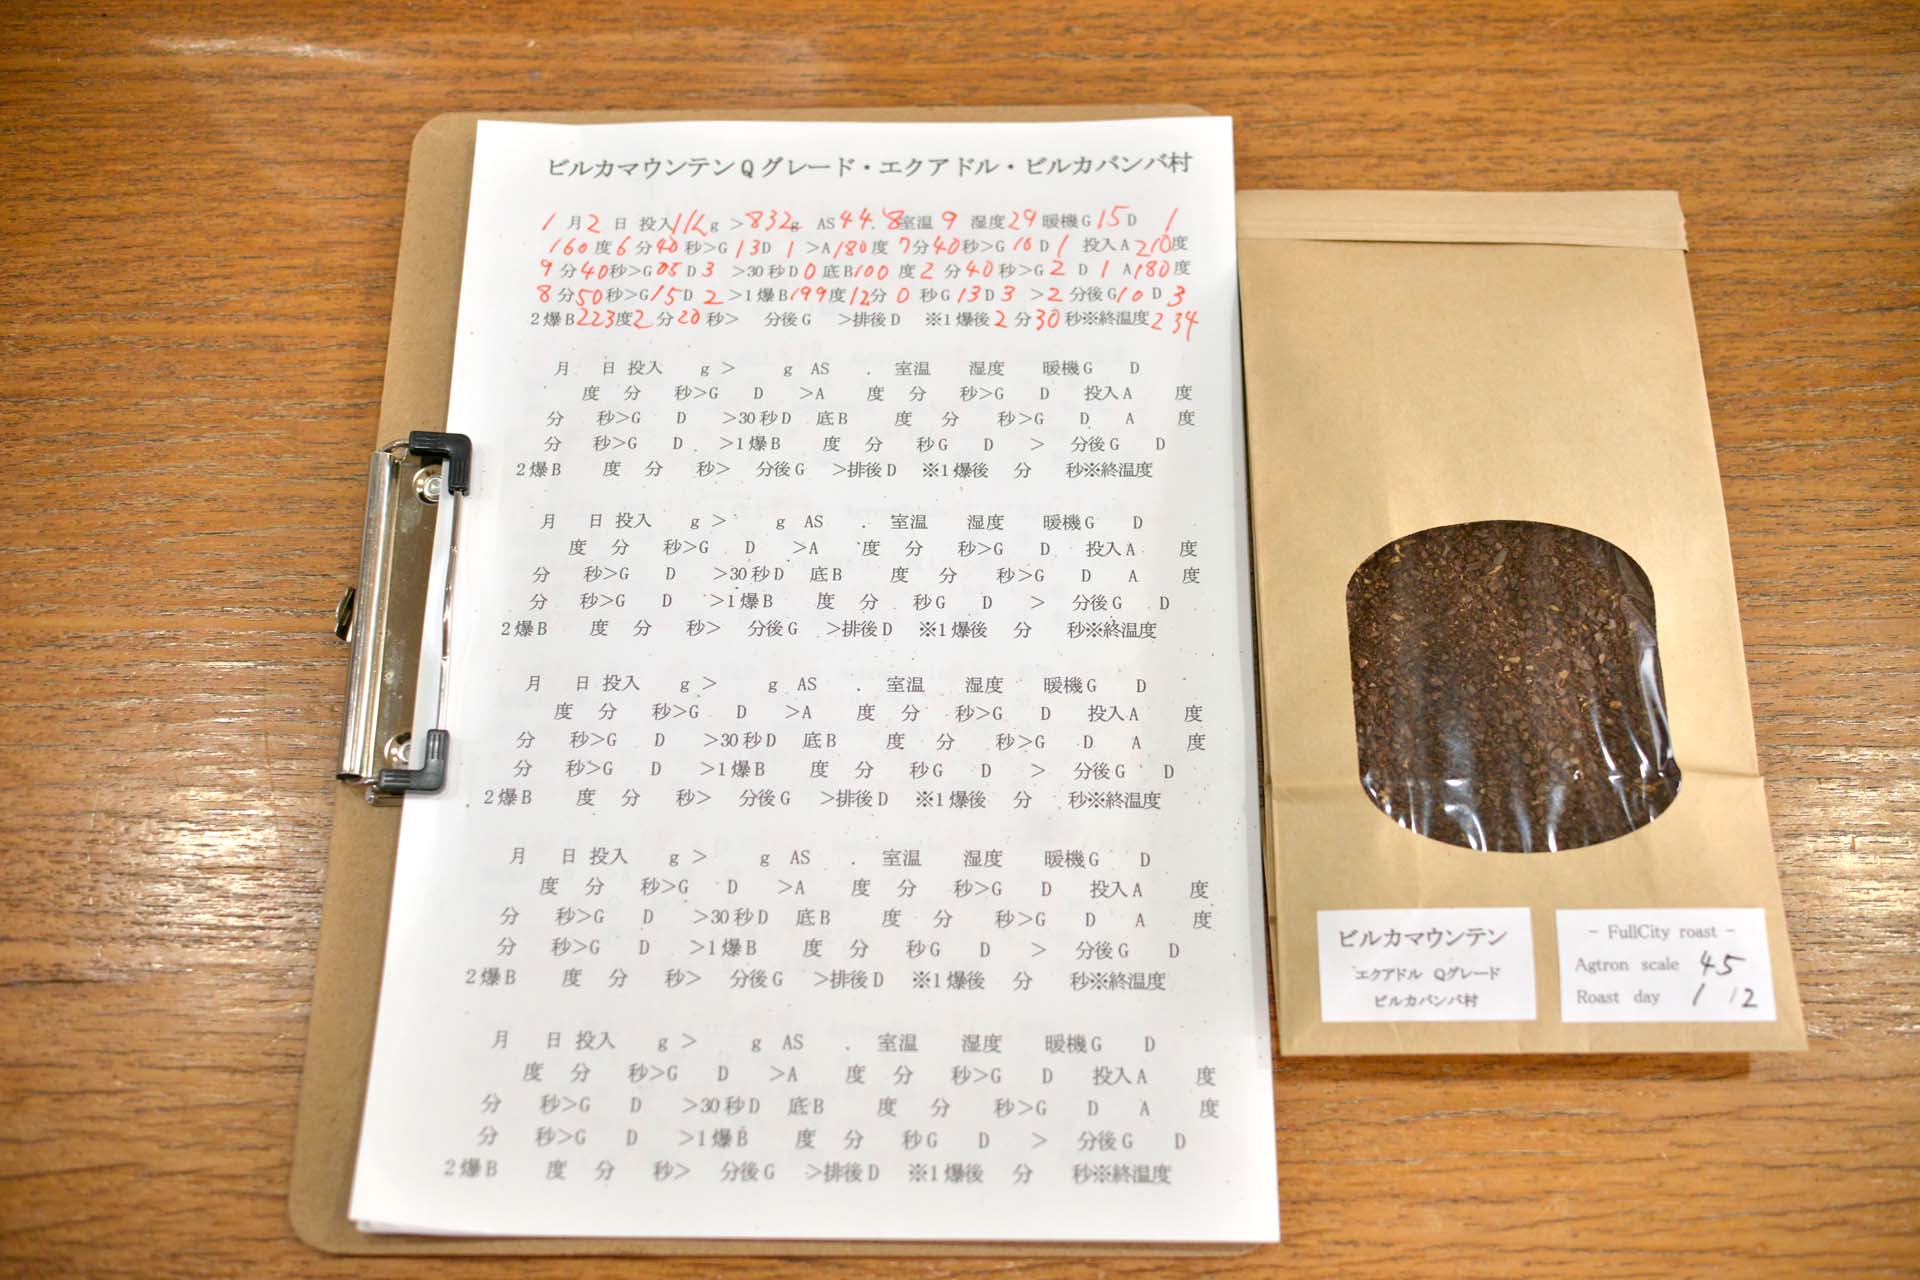 ビルカマウンテンQグレード・エクアドル・ビルカバンバ村
1月2日 投入1kg >832g AS44.8室温9 湿度29暖機G15D 1
160度6分40秒>G13D 1>A180度7分40秒>G10D1 投入A210度
9分40秒>G05D3 >30秒D0底B100度2分40秒>G2D1A180度
8分50秒>G15D2>1爆B199度12分0秒G13D3>2分後G10D3
2爆B223度2分20秒> 分後G >排後D ※1爆後2分30秒※終温度234
月 日 投入 g > g AS . 室温 湿度 暖機G D
度 分 秒>G D >A 度 分 秒>G D 投入A 度
分 秒>G D >30秒D 底B 度 分 秒>G D A 度
分 秒>G D >1爆B 度 分 秒G D > 分後G D
2爆B 度 分 秒> 分後G >排後D ※1爆後 分 秒※終温度
月 日 投入 g > g AS . 室温 湿度 暖機G D
度 分 秒>G D >A 度 分 秒>G D 投入A 度
分 秒>G D >30秒D 底B 度 分 秒>G D A 度
分 秒>G D >1爆B 度 分 秒G D > 分後G D
2爆B 度 分 秒> 分後G >排後D ※1爆後 分 秒※終温度
月 日 投入 g > g AS . 室温 湿度 暖機G D
度 分 秒>G D >A 度 分 秒>G D 投入A 度
分 秒>G D >30秒D 底B 度 分 秒>G D A 度
分 秒>G D >1爆B 度 分 秒G D > 分後G D
2爆B 度 分 秒> 分後G >排後D ※1爆後 分 秒※終温度
月 日 投入 g > g AS . 室温 湿度 暖機G D
度 分 秒>G D >A 度 分 秒>G D 投入A 度
分 秒>G D >30秒D 底B 度 分 秒>G D A 度
分 秒>G D >1爆B 度 分 秒G D > 分後G D
2爆B 度 分 秒> 分後G >排後D ※1爆後 分 秒※終温度
月 日 投入 g > g AS . 室温 湿度 暖機G D
度 分 秒>G D >A 度 分 秒>G D 投入A 度
分 秒>G D >30秒D 底B 度 分 秒>G D A 度
分 秒>G D >1爆B 度 分 秒G D > 分後G D
2爆B 度 分 秒> 分後G >排後D ※1爆後 分 秒※終温度
ビルカマウンテン
エクアドル Qグレード
ビルカバンバ村
- FullCity roast -
Agtron scale 45
Roast day 1/2